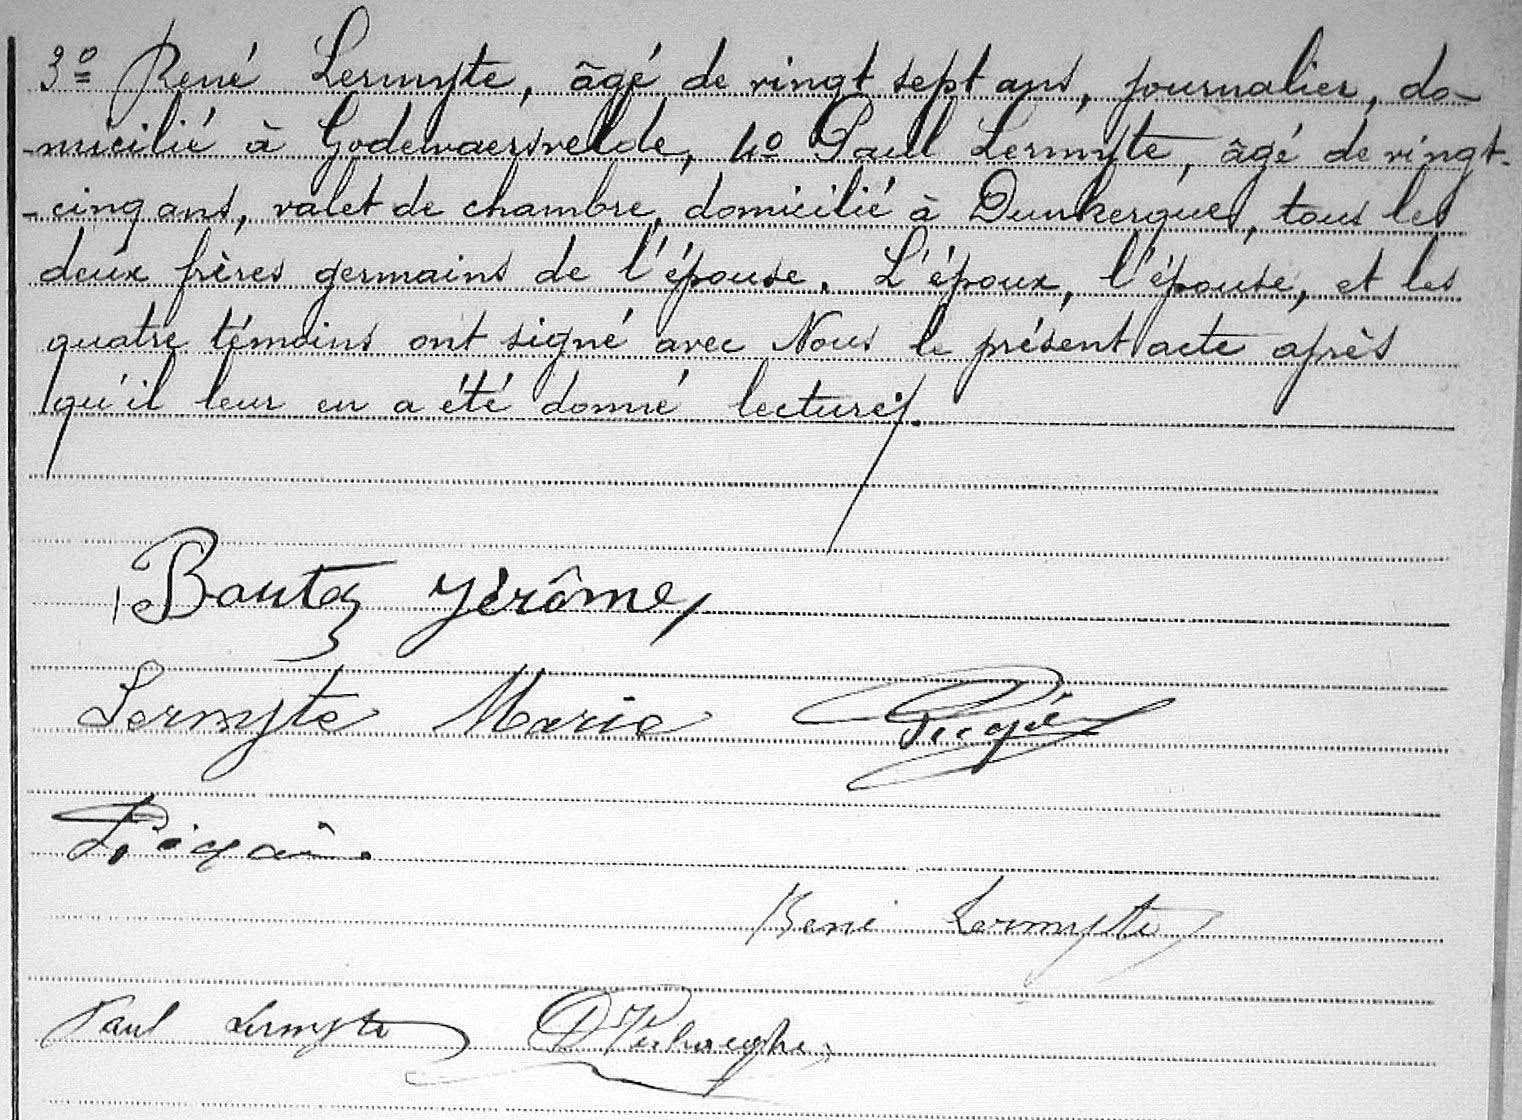 3º René Lermyte, âgé de vingt sept ans, journalier, do-
-micilié à Godewaersvelde, 4º Paul Lermyte, âgé de vingt-
-cinq ans, valet de chambre, domicilié à Dunkerque, tous les
deux frères germains de l'épouse. L'époux, l'épouse, et les
quatre témoins ont signé avec Nous le présent acte après
qu'il leur en a été donné lecture.
Jérôme
Lermyte Marie
René Lermyte
Paul Lermyte